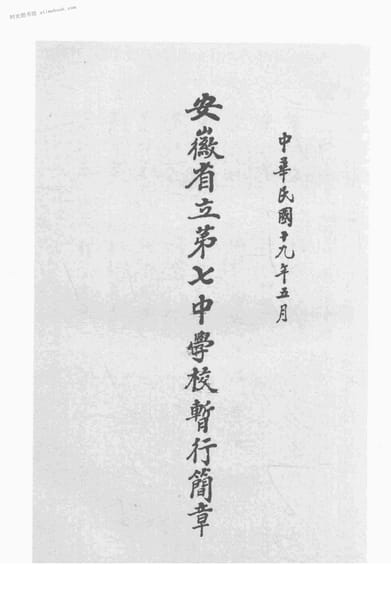 时光图书馆 alimebook.com
中華民國十九年五月
安徽省立第七中學校暫行簡章